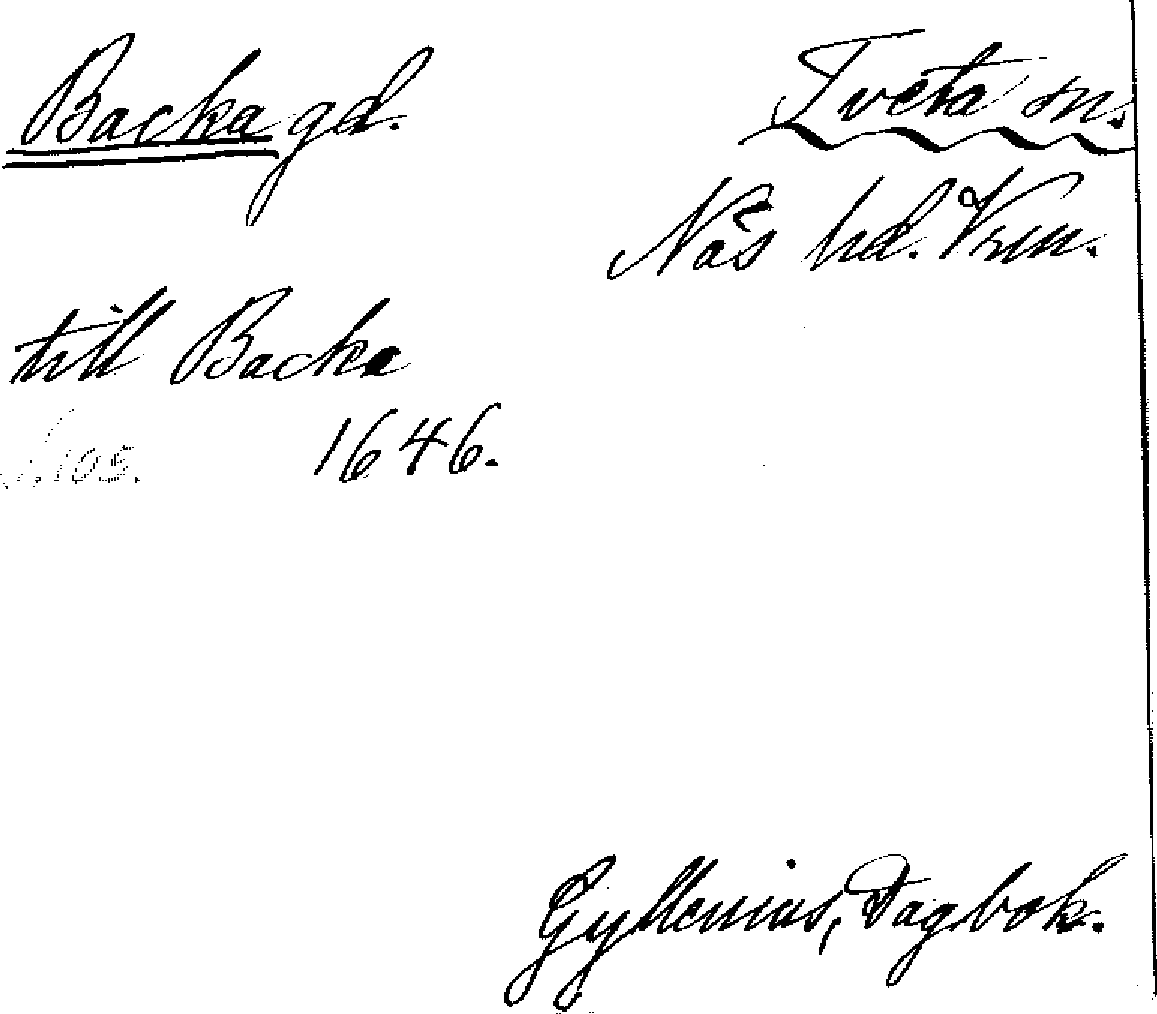 Backa gd.
Tveta sn.
Näs hd. Vrm.
till Backa
s. 105. 1646.
Gyllenius, Dagbok.